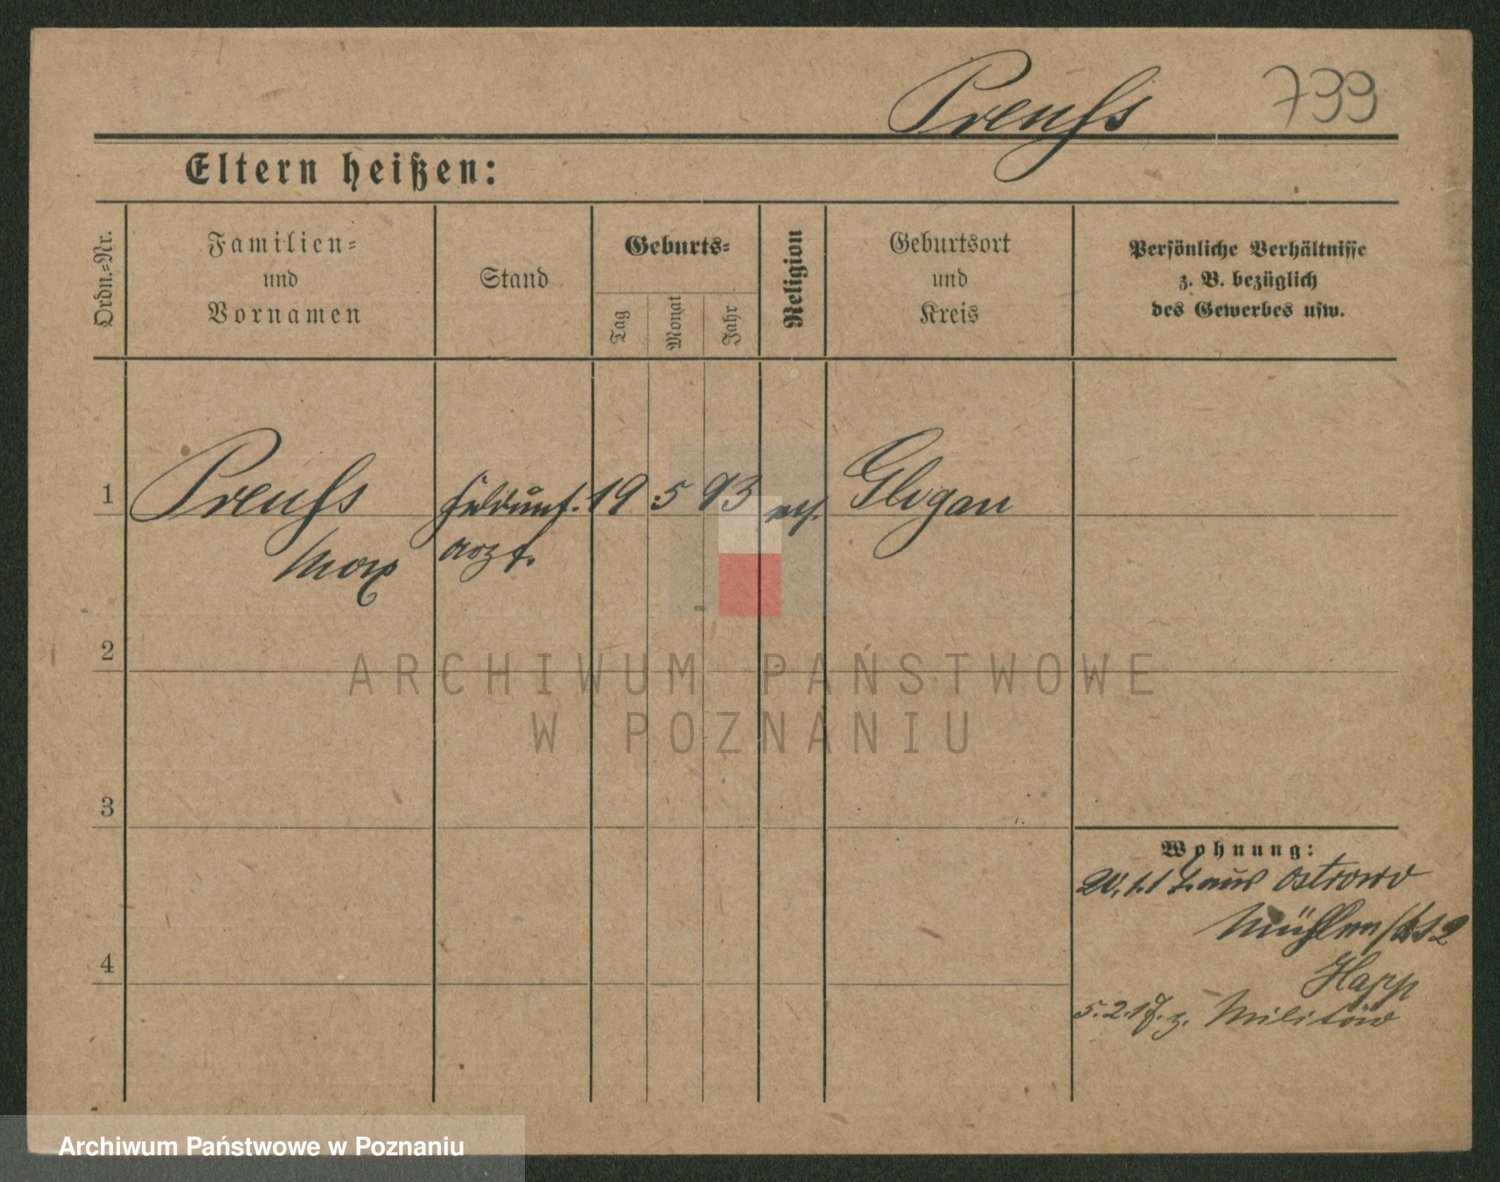 Preuß 799
Eltern heißen:
Ordn.-Nr.
Familien-
und
Vornamen
Stand
Geburts-
Tag
Monat
Jahr
Religion
Geburtsort
und
Kreis
Persönliche Verhältnisse
z. B. bezüglich
des Gewerbes usw.
1 Preuß Feldunt. 19 5 93 Glogau
Max arzt.
2
3
4
Wohnung:
aus Ostrowo
Mühlen
Happ
5.2.17. z. Militär
ARCHIWUM PAŃSTWOWE
W POZNANIU
Archiwum Państwowe w Poznaniu